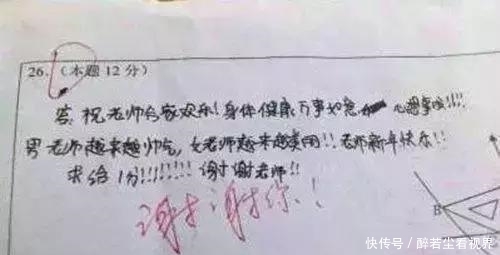 26.（本题12分）
答:祝老师合家欢乐!身体健康万事如意 心想事成!!!!
男老师越来越帅气,女老师越来越美丽!!老师新年快乐!!
求给1分!!!!!!!!谢谢老师!!
谢谢你!!
B
快传号/醉若尘看视界